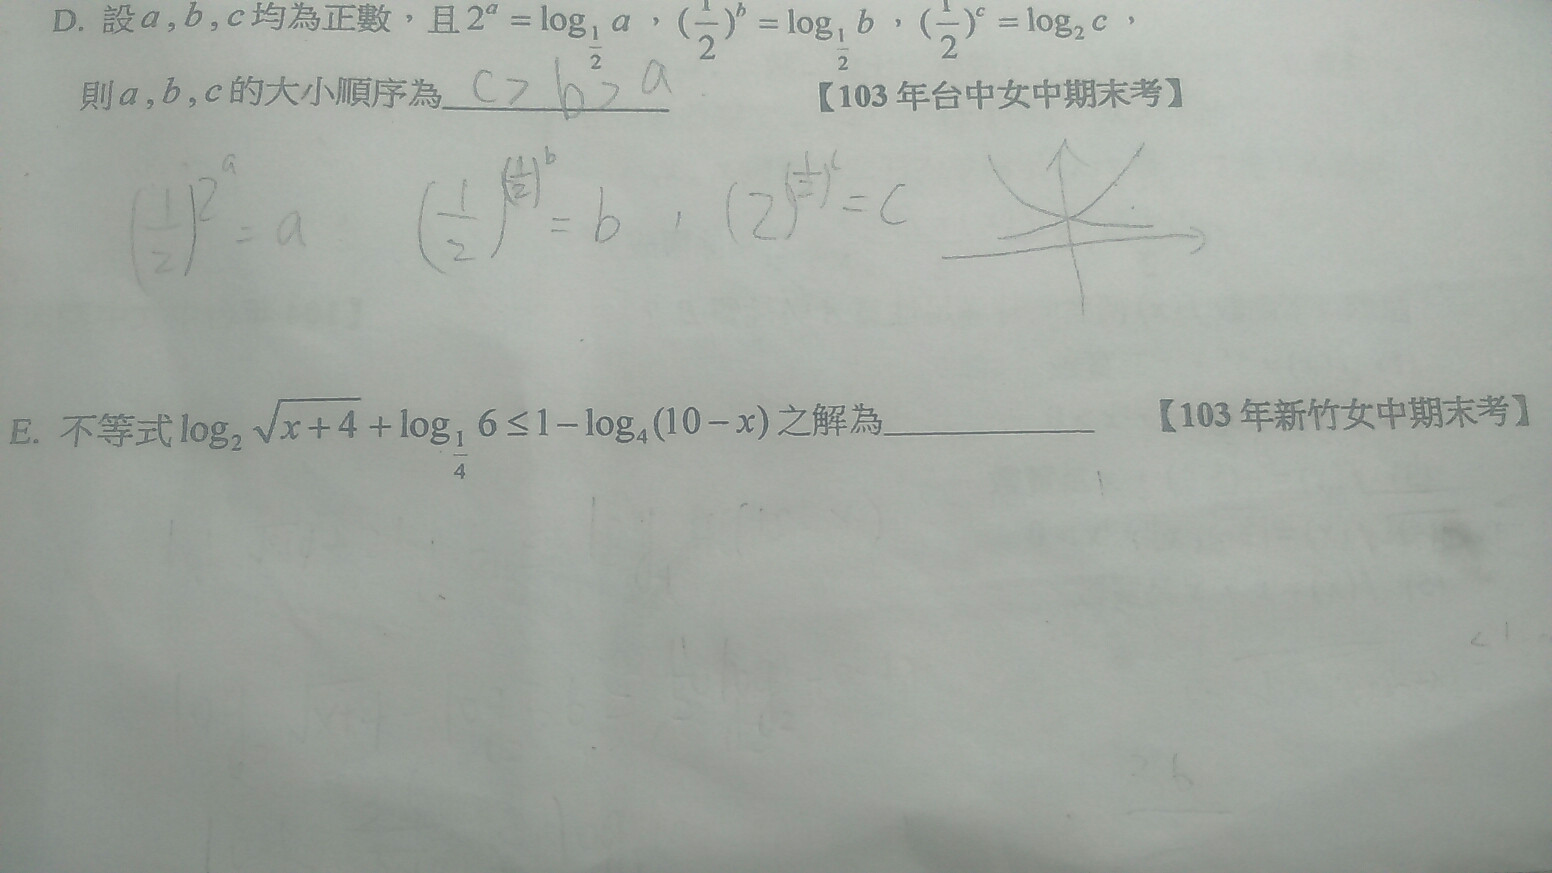 D. 設a,b,c均為正數，且2^a = log_{1/2} a，(1/2)^b = log_{1/2} b，(1/2)^c = log_2 c，
則a,b,c的大小順序為 c > b > a 【103年台中女中期末考】
(1/2)^{2^a} = a (1/2)^{(1/2)^b} = b , (2)^{(1/2)^c} = c
E. 不等式log_2 √(x+4) + log_{1/4} 6 ≤ 1 − log_4 (10 − x)之解為__________ 【103年新竹女中期末考】